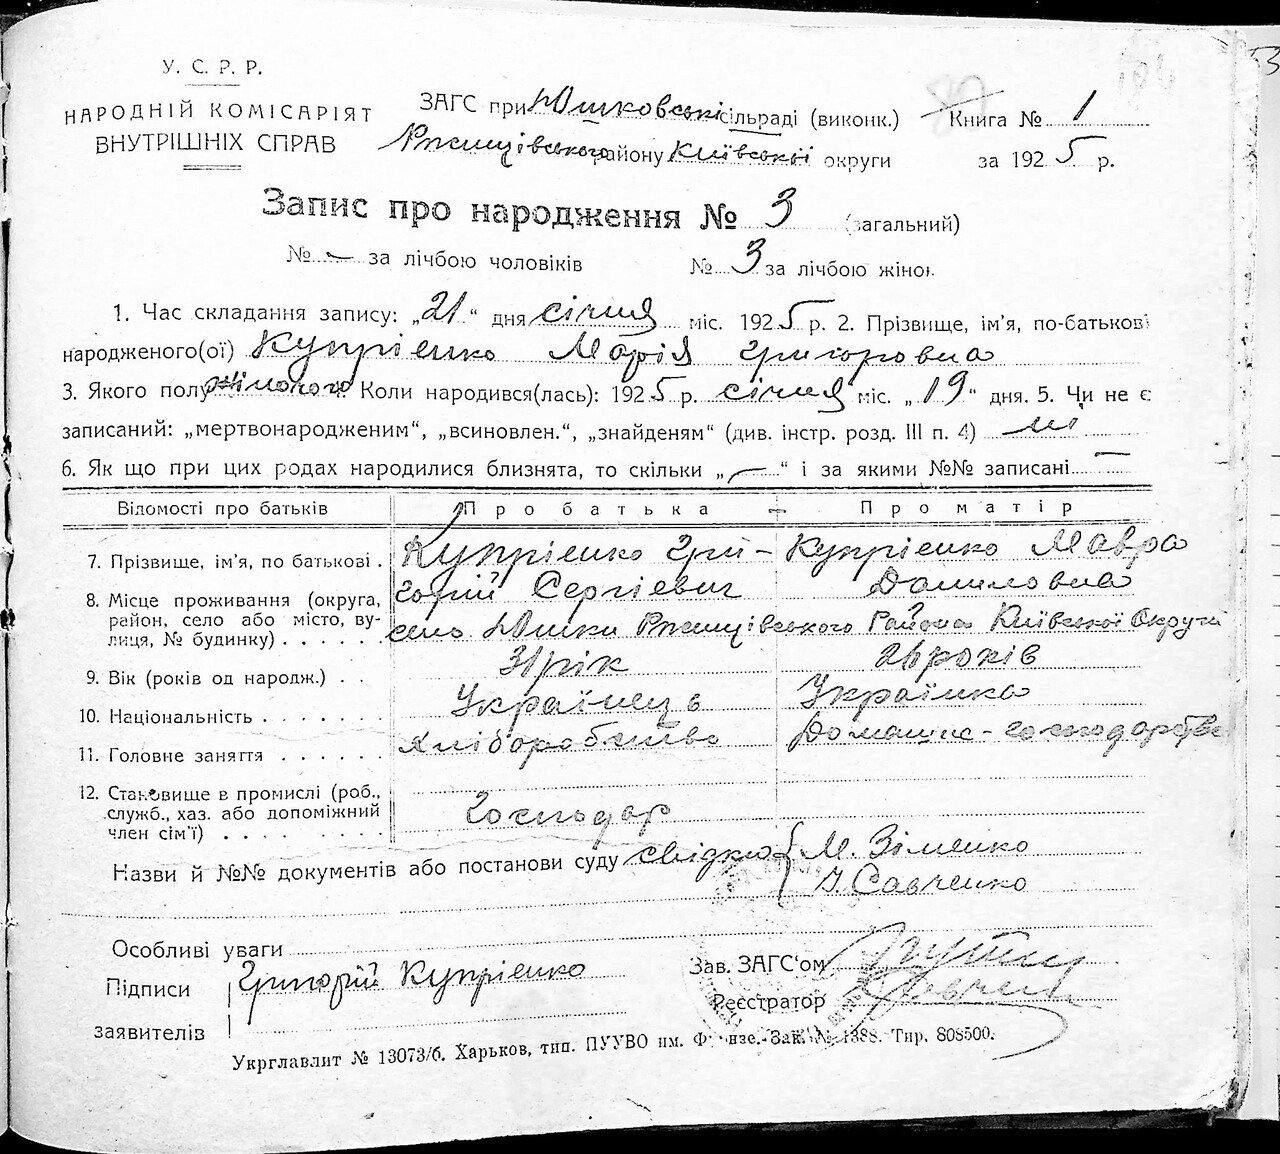 У. С. Р. Р.
НАРОДНІЙ КОМІСАРІЯТ
ВНУТРІШНІХ СПРАВ
ЗАГС при Юшковські сільраді (виконк.)
Ржищівського району Київської округи
Книга № 1
за 1925 р.
Запис про народження № 3 (загальний)
№ — за лічбою чоловіків № 3 за лічбою жінок.
1. Час складання запису: „21“ дня січня міс. 1925 р. 2. Прізвище, ім’я, по-батькові
народженого(ої) Купрієнко Марія Григоровна
3. Якого полу жіночого Коли народився(лась): 1925 р. січня міс. „19“ дня. 5. Чи не є
записаний: „мертвонародженим“, „всиновлен.“, „знайденям“ (див. інстр. розд. III п. 4) ні
6. Як що при цих родах народилися близнята, то скільки „—“ і за якими №№ записані —
Відомості про батьків Про батька Про матір
7. Прізвище, ім’я, по батькові . Купрієнко Гри- Купрієнко Мавра
горій Сергієвич Даниловна
8. Місце проживання (округа,
район, село або місто, ву-
лиця, № будинку) . . . . . село Юшки Ржищівського Района Київської Округи
9. Вік (років од народж.) . . 31 рік 26 років
10. Національність . . . . . . . Українець Українка
11. Головне заняття . . . . . . Хліборобство Домашнє-господарство
12. Становище в промислі (роб.,
служб., хаз. або допоміжний
член сім’ї) . . . . . . . . Господар
Назви й №№ документів або постанови суду свідки { М. Зіменко
Савченко
Особливі уваги
Підписи Григорій Купрієнко
заявителів
Зав. ЗАГС‘ом
Реєстратор
Укрглавлит № 13073/б. Харьков, тип. ПУУВО им. Фрунзе. Зак. № 1388. Тир. 808500.